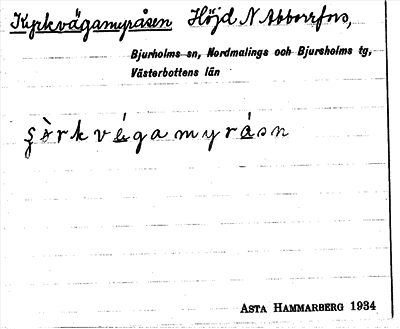 Kyrkvägamyråsen Höjd N Abborrfors,
Bjurholms sn, Nordmalings och Bjursholms tg,
Västerbottens län
ʂò̀rkvégamyrásn
ASTA HAMMARBERG 1934